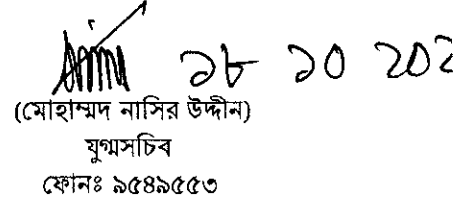 ১৮ ১০ ২০২
(মোহাম্মদ নাসির উদ্দীন)
যুগ্মসচিব
ফোনঃ ৯৫৪৯৫৫৩